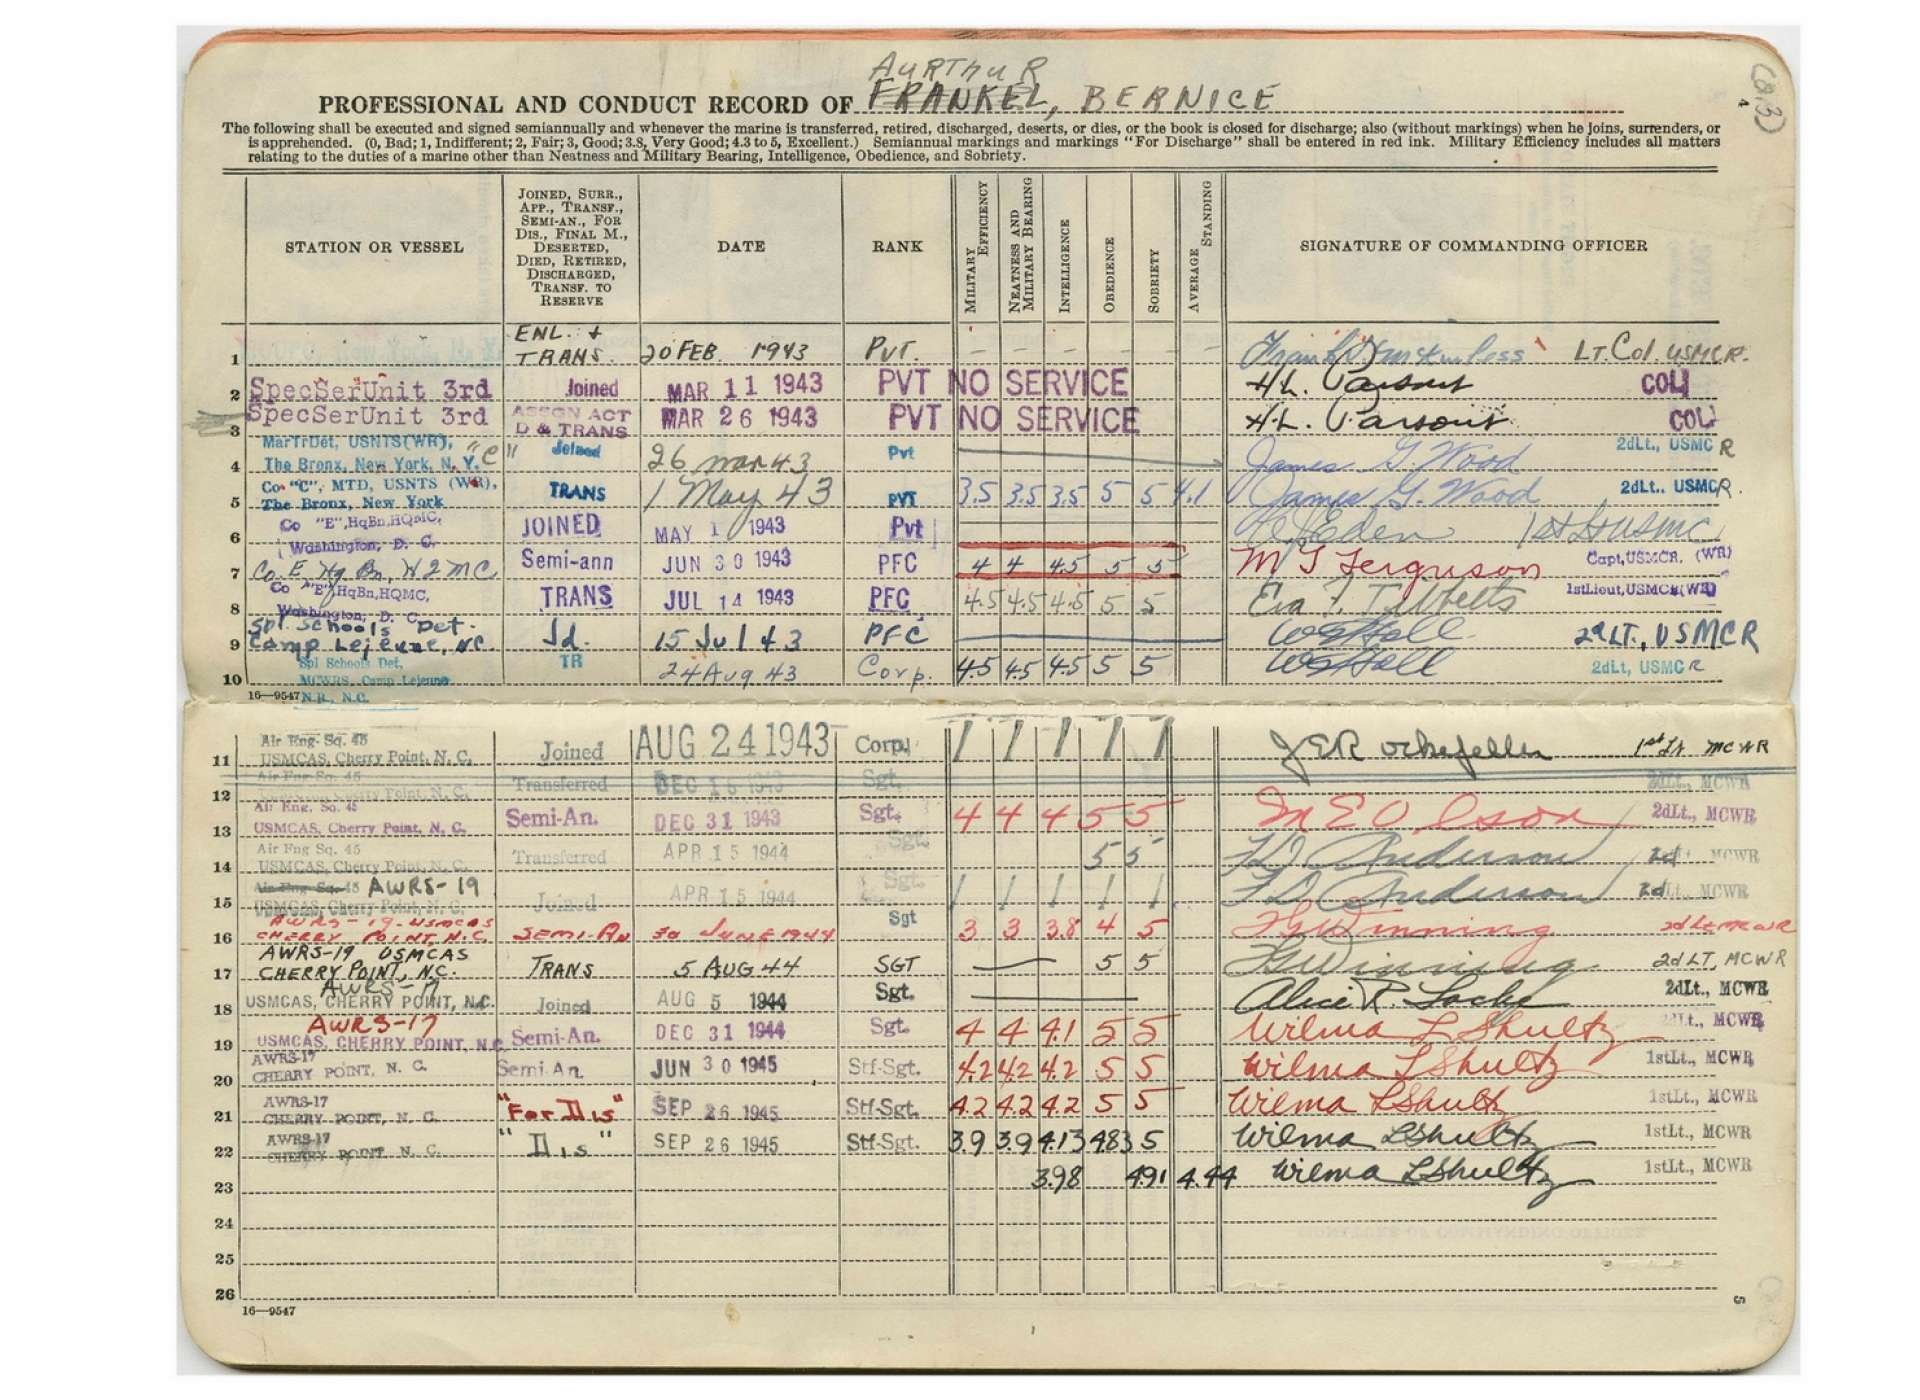 AURTHUR
PROFESSIONAL AND CONDUCT RECORD OF FRANKEL, BERNICE
The following shall be executed and signed semiannually and whenever the marine is transferred, retired, discharged, deserts, or dies, or the book is closed for discharge; also (without markings) when he joins, surrenders, or
is apprehended. (0, Bad; 1, Indifferent; 2, Fair; 3, Good; 3.8, Very Good; 4.3 to 5, Excellent.) Semiannual markings and markings "For Discharge" shall be entered in red ink. Military Efficiency includes all matters
relating to the duties of a marine other than Neatness and Military Bearing, Intelligence, Obedience, and Sobriety.
4
STATION OR VESSEL
JOINED, SURR.,
APP., TRANSF.,
SEMI-AN., FOR
DIS., FINAL M.,
DESERTED,
DIED, RETIRED,
DISCHARGED,
TRANSF. TO
RESERVE
DATE
RANK
MILITARY EFFICIENCY
NEATNESS AND MILITARY BEARING
INTELLIGENCE
OBEDIENCE
SOBRIETY
AVERAGE STANDING
SIGNATURE OF COMMANDING OFFICER
1 ENL. + TRANS. 20 FEB. 1943 PVT. – – – – – – LT. COL. USMCR.
2 SpecSerUnit 3rd Joined MAR 11 1943 PVT NO SERVICE H.L. Parsons COL
3 SpecSerUnit 3rd ASSGN ACT D & TRANS MAR 26 1943 PVT NO SERVICE H.L. Parsons COL
4 MarTrDet, USNTS(WR), "C" The Bronx, New York, N.Y. Joined 26 Mar 43 Pvt James G. Wood 2dLt., USMC R
5 Co "C", MTD, USNTS (WR), The Bronx, New York TRANS 1 May 43 PVT 3.5 3.5 3.5 5 5 4.1 James G. Wood 2dLt., USMC R.
6 Co "E", HqBn, HQMC, Washington, D. C. JOINED MAY 1 1943 Pvt Eden 1st Lt USMC
7 Co. E Hq Bn, HQMC Semi-ann JUN 30 1943 PFC 4 4 4.5 5 5 M J Ferguson Capt, USMCR. (WR)
8 Co "E", HqBn, HQMC, Washington, D. C. TRANS JUL 14 1943 PFC 4.5 4.5 4.5 5 5 Eva T. Tibbetts 1stLieut, USMCR(WR)
9 Spl. Schools Det. Camp Lejeune, NC. Jd. 15 Jul 43 PFC WG Hall 2d LT., USMCR
10 Spl Schools Det, MCWRS, Camp Lejeune N.R., N.C. TR 24 Aug 43 Corp. 4.5 4.5 4.5 5 5 WG Hall 2dLt, USMC R
16—9547
11 Air Eng. Sq. 45 USMCAS, Cherry Point, N. C. Joined AUG 24 1943 Corp. / / / / / J E Rockefeller 1st Lt MCWR
12 Air Eng Sq. 45 Cherry Point, N. C. Transferred DEC 16 1943 Sgt. 2dLt., MCWR
13 Air Eng. Sq. 45 USMCAS, Cherry Point, N. C. Semi-An. DEC 31 1943 Sgt. 4 4 4 5 5 M E Olson 2dLt., MCWR
14 Air Eng Sq. 45 USMCAS, Cherry Point, N. C. Transferred APR 15 1944 Sgt. 5 5 Anderson 2d Lt., MCWR
15 Air Eng. Sq. 45 AWRS-19 USMCAS, Cherry Point, N. C. Joined APR 15 1944 Sgt. / / / / / Anderson 2d Lt., MCWR
16 AWRS-19-USMCAS CHERRY POINT, N.C. SEMI-AN 30 JUNE 1944 Sgt 3 3 3.8 4 5 Winning 2d Lt MCWR
17 AWRS-19 USMCAS CHERRY POINT, N.C. TRANS 5 AUG 44 SGT 5 5 Winning 2d LT, MCWR
18 AWRS-17 USMCAS, CHERRY POINT, N.C. Joined AUG 5 1944 Sgt. Alice R. Locke 2dLt., MCWR
19 AWRS-17 USMCAS, CHERRY POINT, N.C. Semi-An. DEC 31 1944 Sgt. 4 4 4.1 5 5 Wilma L Shultz 2dLt., MCWR
20 AWRS-17 CHERRY POINT, N. C. Semi-An. JUN 30 1945 Stf-Sgt. 4.2 4.2 4.2 5 5 Wilma L Shultz 1stLt., MCWR
21 AWRS-17 CHERRY POINT, N. C. "For Dis" SEP 26 1945 Stf-Sgt. 4.2 4.2 4.2 5 5 Wilma L Shultz 1stLt., MCWR
22 AWRS-17 CHERRY POINT N. C. "Dis" SEP 26 1945 Stf-Sgt. 3.9 3.9 4.13 4.83 5 Wilma L Shultz 1stLt., MCWR
23 3.98 4.91 4.44 Wilma L Shultz 1stLt., MCWR
24
25
26
16—9547
5